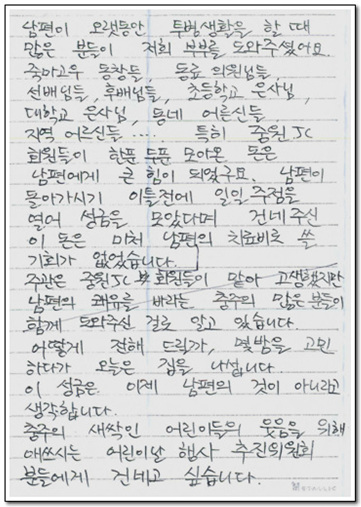 남편이 오랫동안 투병생활을 할 때
많은 분들이 저희 부부를 도와주셨어요.
죽마고우 동창들, 동료 의원님들,
선배님들, 후배님들, 초등학교 은사님,
대학교 은사님, 동네 어른신들,
지역 어르신들 .... 특히 중원JC
회원들이 한푼 두푼 모아온 돈은
남편에게 큰 힘이 되었구요. 남편이
돌아가시기 이틀전에 일일주점을
열어 성금을 모았다며 건네주신
이 돈은 미처 남편의 치료비로 쓸
기회가 없었습니다.
주관은 중원JC 회원들이 맡아 고생했지만
남편의 쾌유를 바라는 충주의 많은 분들이
함께 도와주신 걸로 알고 있습니다.
어떻게 전해 드릴까, 몇밤을 고민
하다가 오늘은 집을 나섭니다.
이 성금은 이제 남편의 것이 아니라고
생각합니다.
충주의 새싹인 어린이들의 웃음을 위해
애쓰시는 어린이날 행사 추진위원회
분들에게 건네고 싶습니다.